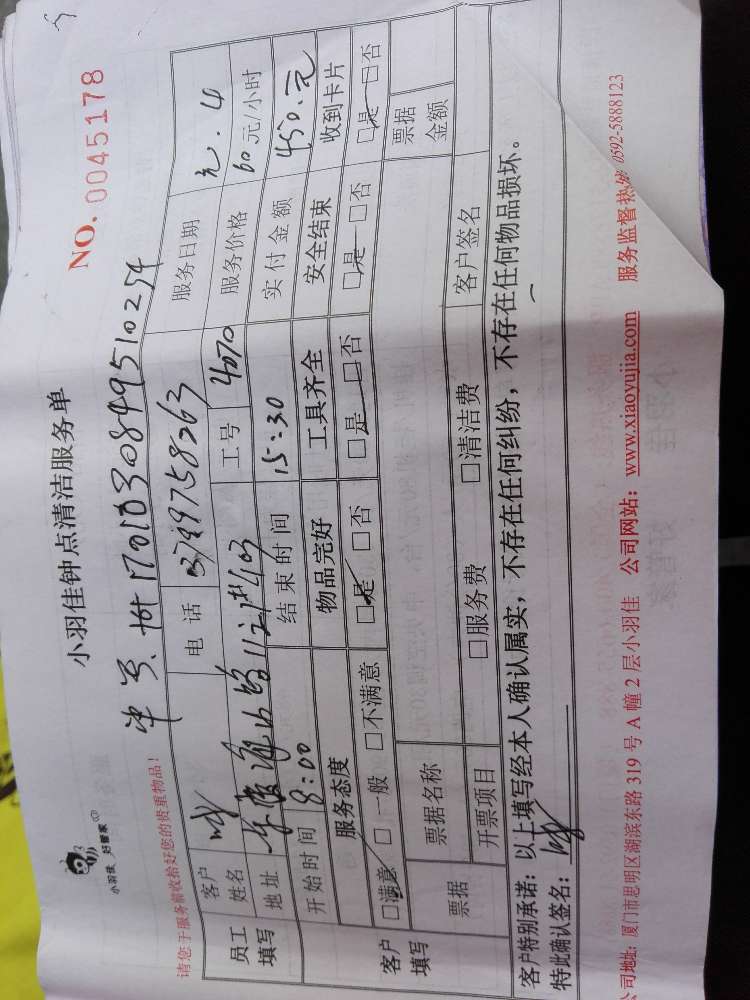 小羽佳 好管家
小羽佳钟点清洁服务单
NO. 0045178
请您于服务前收拾好您的贵重物品!
单号: 1701030849510254
员工填写 客户姓名 电话 37497582263 服务日期
地址 1121#403 工号 4070 服务价格 60 元/小时
开始时间 8:00 结束时间 15:30 实付金额 450.元
客户填写 服务态度 物品完好 工具齐全 安全结束 收到卡片
□满意 □一般 □不满意 □是 □否 □是 □否 □是 □否 □是 □否
票据 票据名称 票据金额
开票项目 □服务费 □清洁费 客户签名
客户特别承诺:以上填写经本人确认属实,不存在任何纠纷,不存在任何物品损坏。
特此确认签名:
公司地址:厦门市思明区湖滨东路 319 号 A 幢 2 层小羽佳 公司网站:www.xiaoyujia.com 服务监督热线 0592-5888123